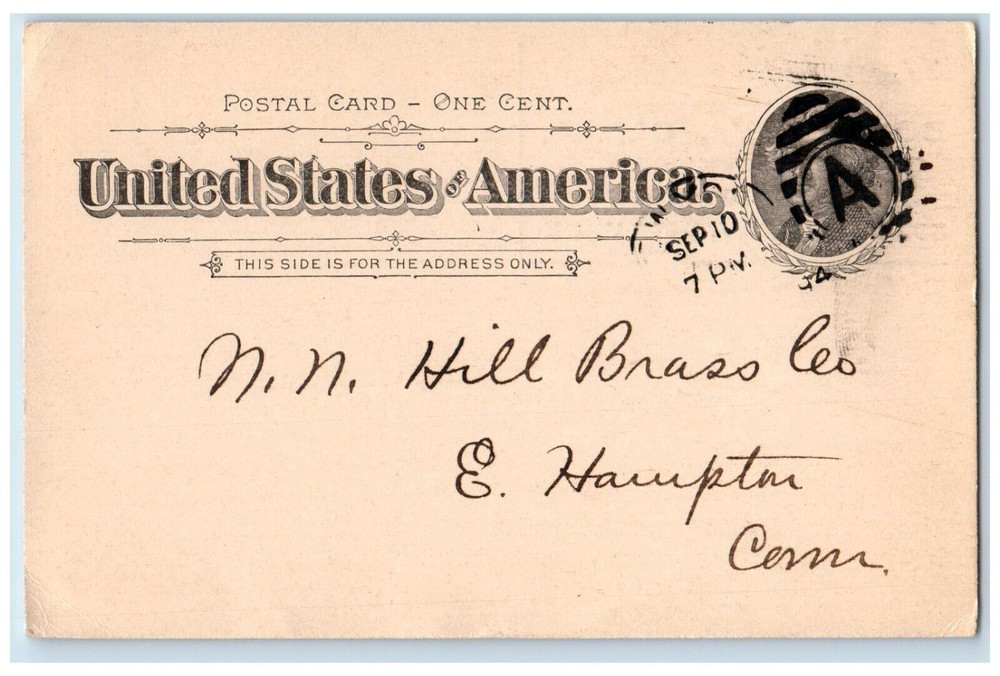 POSTAL CARD – ONE CENT.
United States OF America.
THIS SIDE IS FOR THE ADDRESS ONLY.
SEP 10
7 PM
94
A
N. N. Hill Brass Co
E. Hampton
Conn.